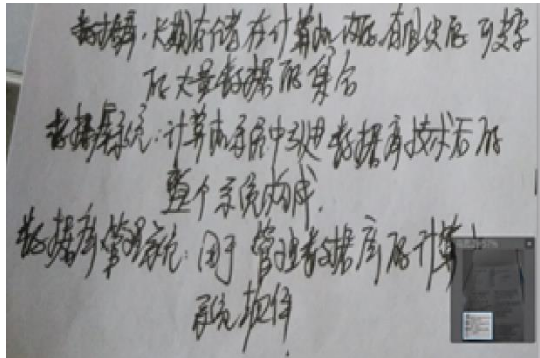 数据库：长期存储在计算机内、有组织的、可共享
的大量数据的集合
数据库系统：计算机系统中引进数据库技术后的
整个系统构成.
数据库管理系统：用于管理数据库的计算
系统软件